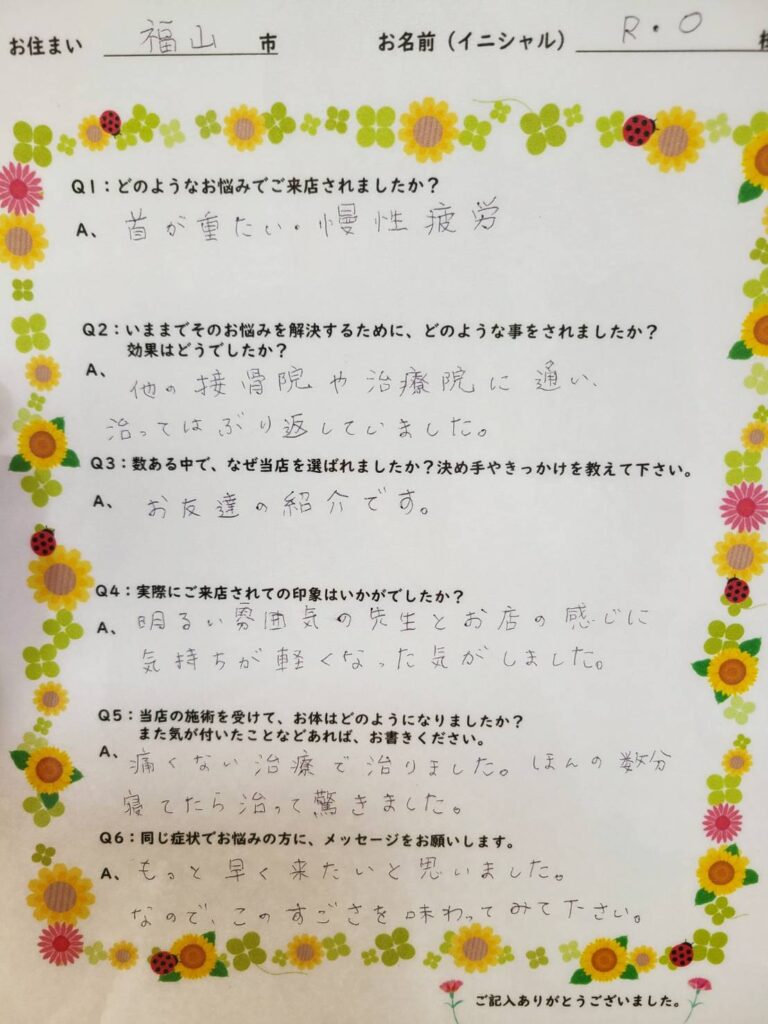 お住まい 福山 市 お名前（イニシャル） R・O 様
Q1：どのようなお悩みでご来店されましたか？
A、首が重たい・慢性疲労
Q2：いままでそのお悩みを解決するために、どのような事をされましたか？
効果はどうでしたか？
A、他の接骨院や治療院に通い、
治ってはぶり返していました。
Q3：数ある中で、なぜ当店を選ばれましたか？決め手やきっかけを教えて下さい。
A、お友達の紹介です。
Q4：実際にご来店されての印象はいかがでしたか？
A、明るい雰囲気の先生とお店の感じに
気持ちが軽くなった気がしました。
Q5：当店の施術を受けて、お体はどのようになりましたか？
また気が付いたことなどあれば、お書きください。
A、痛くない治療で治りました。ほんの数分
寝てたら治って驚きました。
Q6：同じ症状でお悩みの方に、メッセージをお願いします。
A、もっと早く来たいと思いました。
なので、このすごさを味わってみて下さい。
ご記入ありがとうございました。